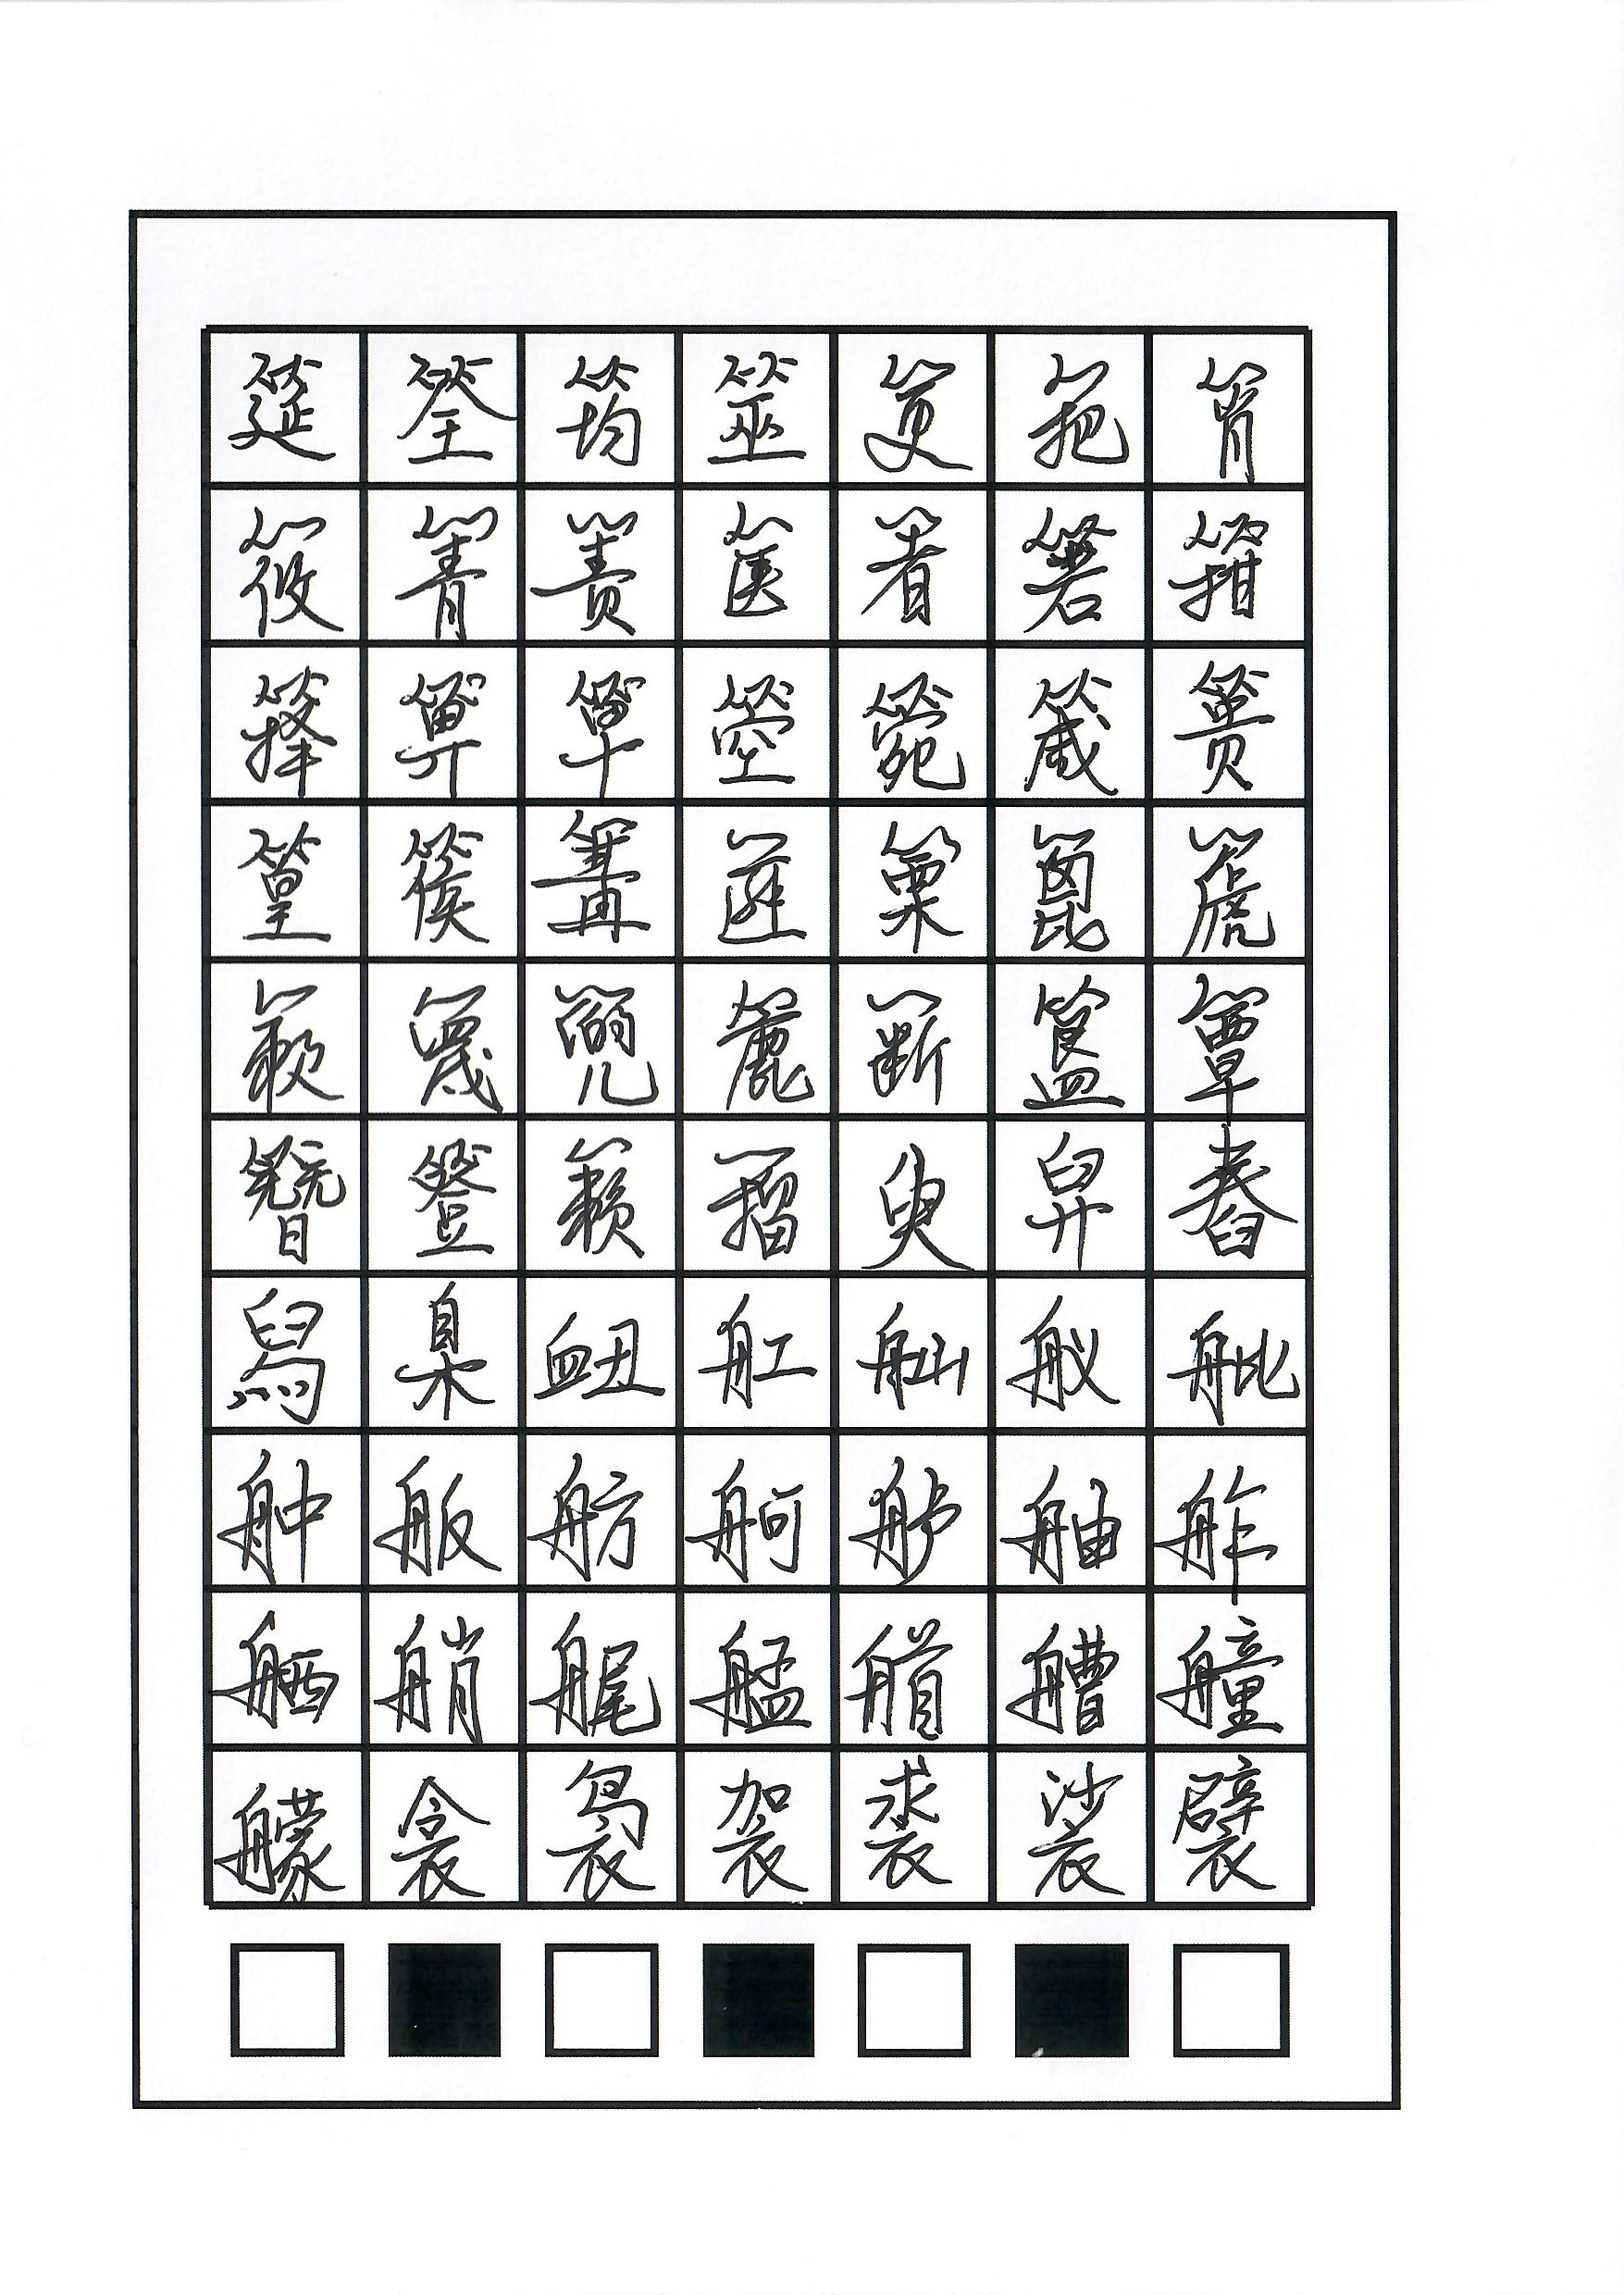 筵筌筠筮筻筢筲
筱箐箦箧箸箬箝
箨箅箪箜箢箴篑
篁篌篝篚篥篦篪
簌篾篼簏簖簋簟
簪簦籁籀臾舁舂
舄臬衄舡舢舣舭
舯舨舫舸舻舳舴
舾艄艉艋艏艚艟
艨衾袅袈裘裟襞